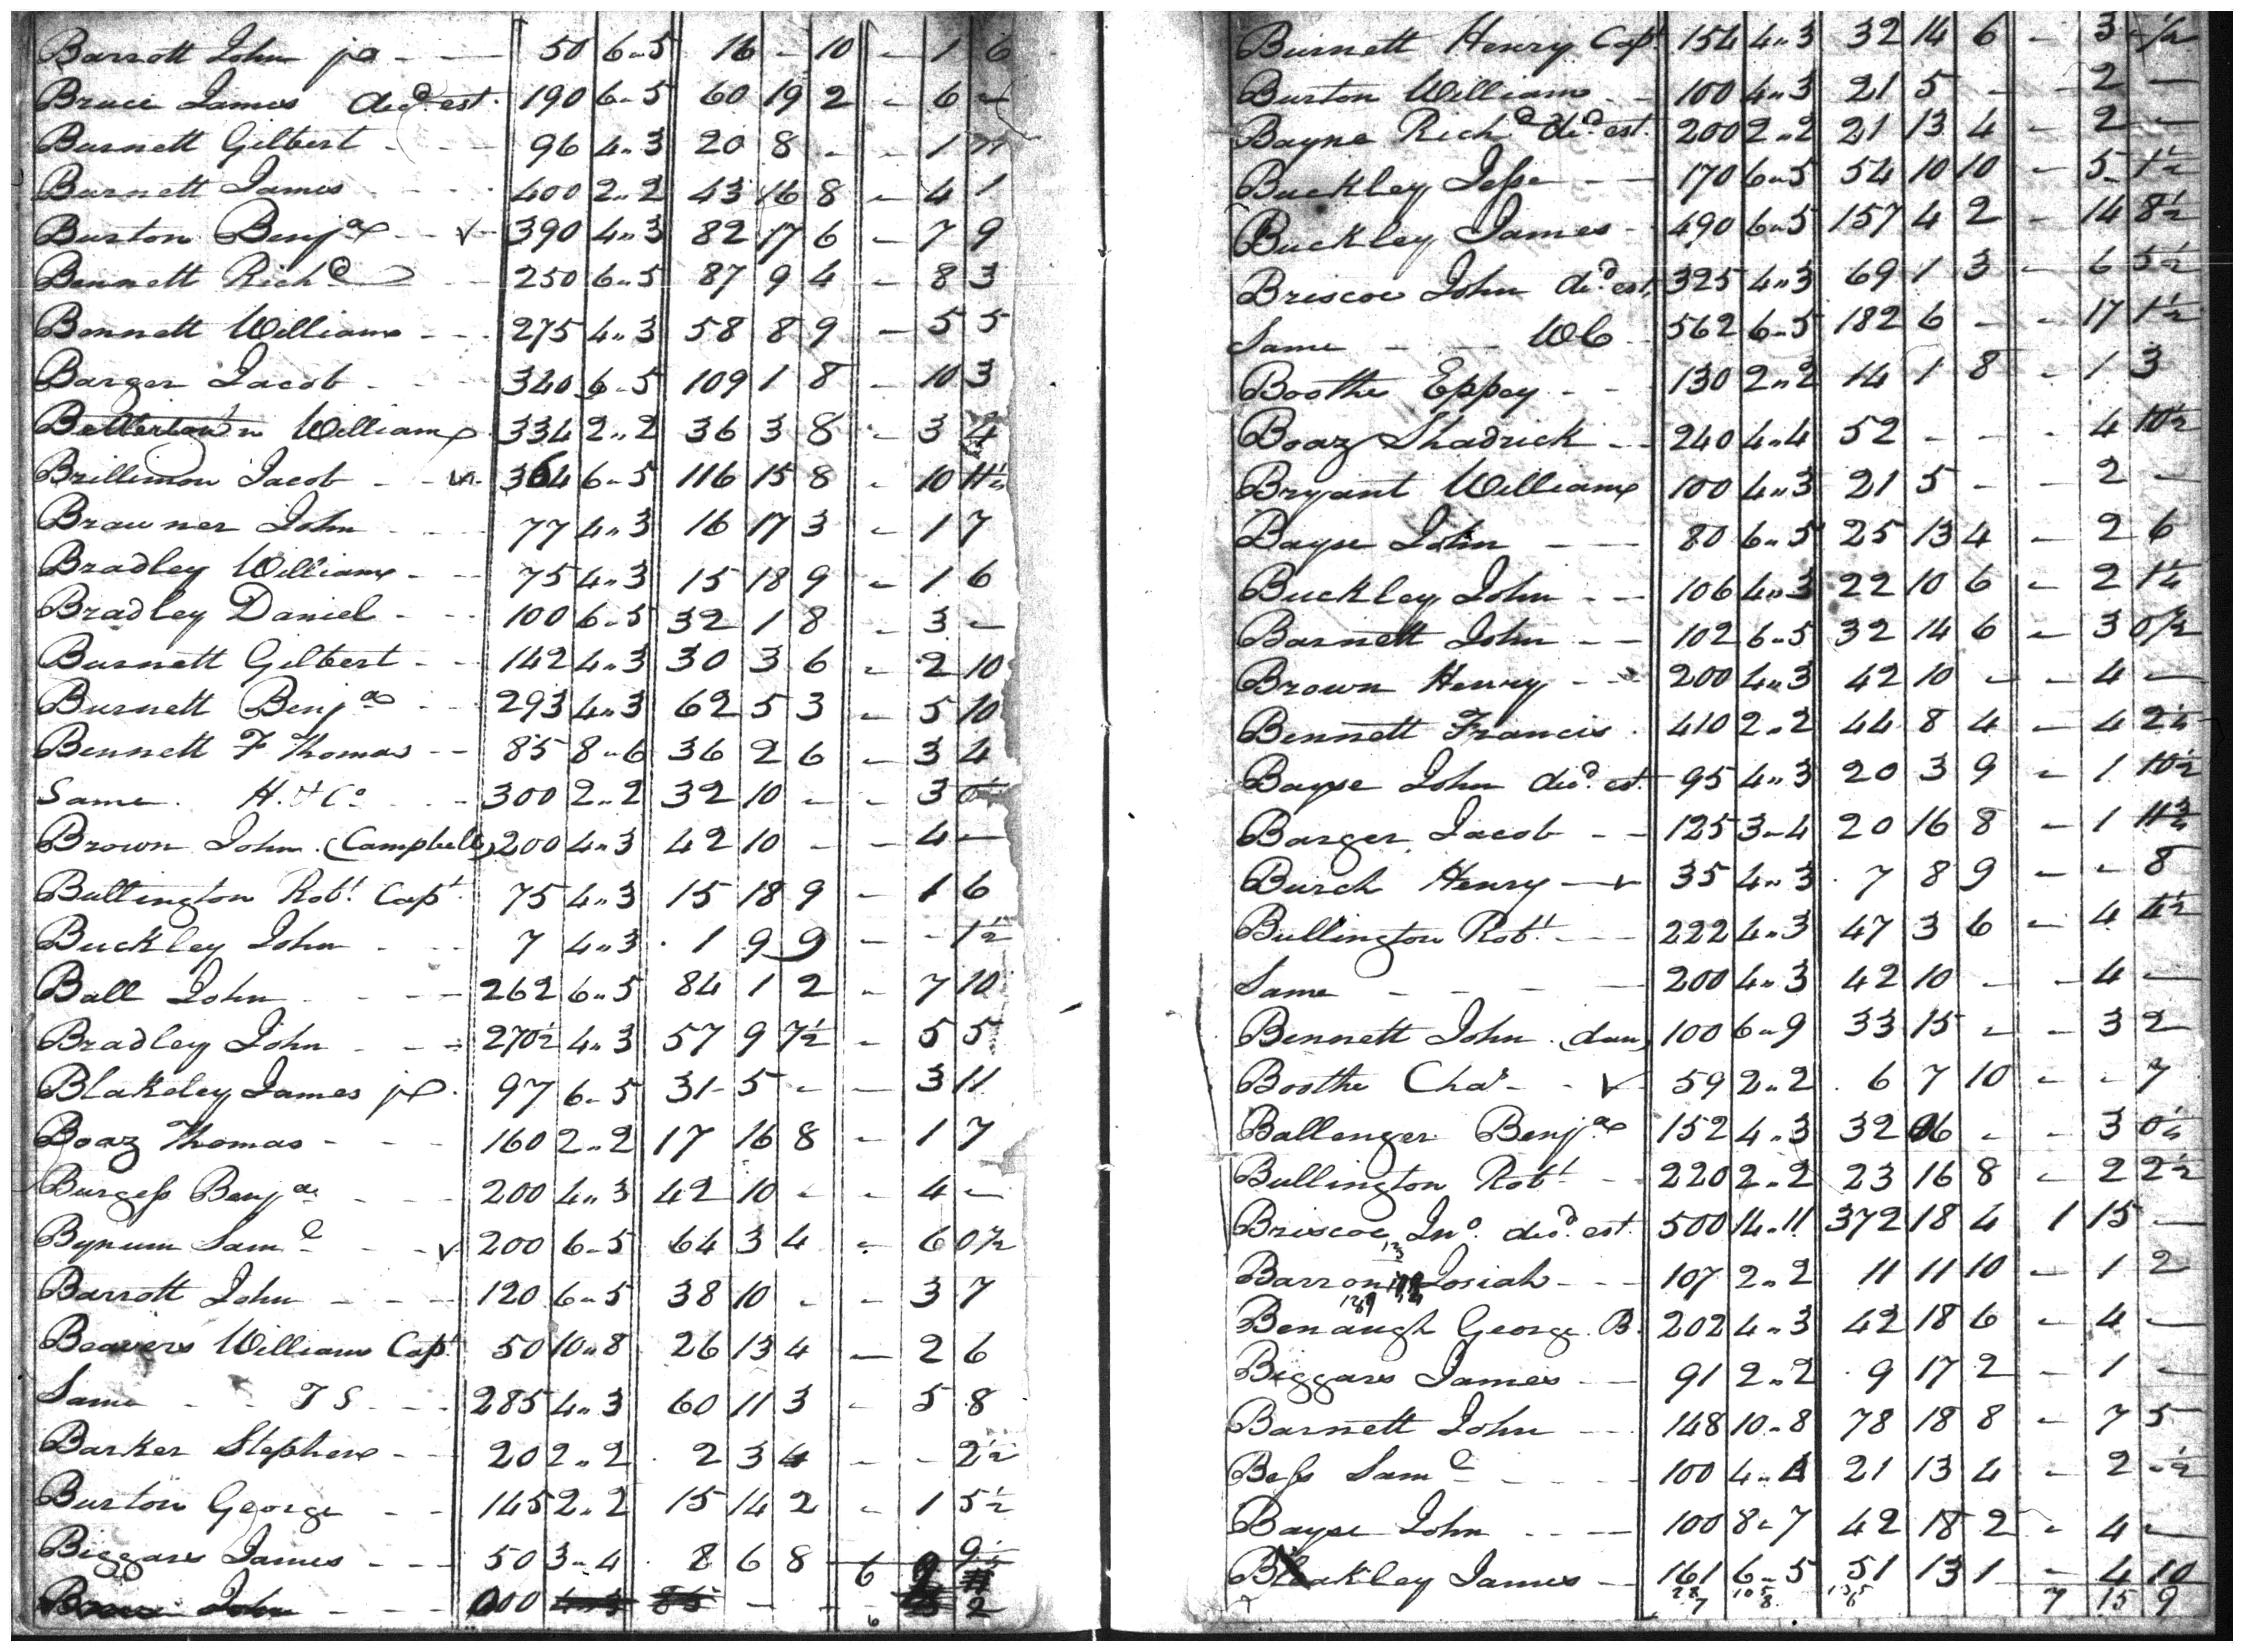 Barrott John jr - - 50 6 - 5 16 - 10 - 1 6
Bruce James decd est. 190 6 - 5 60 19 2 - 6 -
Burnett Gilbert - - 96 4 " 3 20 8 - - 1 11
Burnett James - - - 400 2 " 2 43 16 8 - 4 1
Burton Benja - - v 390 4 " 3 82 17 6 - 7 9
Bennett Richd - 250 6 " 5 87 9 4 - 8 3
Bennett William - - 275 4 " 3 58 8 9 - 5 5
Barger Jacob - - 340 6 - 5 109 1 8 - 10 3
Betterton William 334 2 " 2 36 3 8 - 3 4
Brillimon Jacob - - 364 6 - 5 116 15 8 - 10 11½
Brawner John - - 77 4 " 3 16 17 3 - 1 7
Bradley William - - 75 4 " 3 15 18 9 - 1 6
Bradley Daniel - - 100 6 - 5 32 1 8 - 3 -
Burnett Gilbert - - 142 4 " 3 30 3 6 - 2 10
Burnett Benja - - 293 4 " 3 62 5 3 - 5 10
Bennett F Thomas - - 85 8 " 6 36 2 6 - 3 4
Same H. & Co - - 300 2 " 2 32 10 - - 3 0½
Brown John (Campbell) 200 4 " 3 42 10 - - 4 -
Bullington Robt Capt 75 4 " 3 15 18 9 - 1 6
Buckley John - - 7 4 " 3 1 9 9 - - 1½
Ball John - - - 262 6 " 5 84 1 2 - 7 10
Bradley John - - - 270½ 4 " 3 57 9 7½ - 5 5
Blakeley James jr 97 6 - 5 31 - 5 - - 3 11
Boaz Thomas - - - 160 2 " 2 17 16 8 - 1 7
Burgess Benja - - - 200 4 " 3 42 10 - - 4 -
Bynum Saml - - v 200 6 - 5 64 3 4 - 6 0½
Barrott John - - - 120 6 - 5 38 10 - - 3 7
Beavers William Capt 50 10 " 8 26 13 4 - 2 6
Same - - T S - - 285 4 " 3 60 11 3 - 5 8
Barker Stephen - - 20 2 " 2 2 3 4 - - 2½
Burton George - - 145 2 " 2 15 14 2 - 1 5½
Biggars James - - - 50 3 - 4 8 6 8 6 9
John - - - 6 2
Burnett Henry Capt 154 4 " 3 32 14 6 - 3 -½
Burton William - - 100 4 " 3 21 5 - - 2 -
Bayne Richd decd est. 200 2 " 2 21 13 4 - 2 -
Buckley Jesse - - 170 6 " 5 54 10 10 - 5 1½
Buckley James - 490 6 " 5 157 4 2 - 14 8½
Briscoe John decd est. 325 4 " 3 69 1 3 - 6 5½
Same - - - W C 562 6 - 5 182 6 - - 17 1½
Boothe Eppey - - 130 2 " 2 14 1 8 - 1 3
Boaz Shadrick - - 240 4 " 4 52 - - - 4 10½
Bryant William 100 4 " 3 21 5 - - 2 -
Bayse John - - 80 6 " 5 25 13 4 - 2 6
Buckley John - - 106 4 " 3 22 10 6 - 2 1¼
Barnett John - - 102 6 " 5 32 14 6 - 3 0½
Brown Henry - - 200 4 " 3 42 10 - - 4 -
Bennett Francis - 410 2 " 2 44 8 4 - 4 2¼
Bayse John decd est. 95 4 " 3 20 3 9 - 1 10½
Barger Jacob - - 125 3 - 4 20 16 8 - 1 11¾
Burch Henry - v 35 4 " 3 7 8 9 - - 8
Bullington Robt - - 222 4 " 3 47 3 6 - 4 4½
Same - - - - 200 4 " 3 42 10 - - 4 -
Bennett John (dan) 100 6 " 9 33 15 - - 3 2
Boothe Chas - - v 59 2 " 2 6 7 10 - - 7
Ballenger Benja 152 4 " 3 32 6 - - 3 0½
Bullington Robt - 220 2 " 2 23 16 8 - 2 2½
Briscoe Jno decd est. 500 14 " 11 372 18 4 1 15 -
Barron Josiah - - - 107 2 " 2 11 11 10 - 1 2
Benaugh George B. 202 4 " 3 42 18 6 - 4 -
Biggars James - - 91 2 " 2 9 17 2 - 1 -
Barnett John - - 148 10 " 8 78 18 8 - 7 5
Bess Saml - - - 100 4 " 4 21 13 4 - 2 -½
Bayse John - - - 100 8 - 7 42 18 2 - 4 -
Blakley James - 161 6 - 5 51 13 1 - 4 10
7 15 9